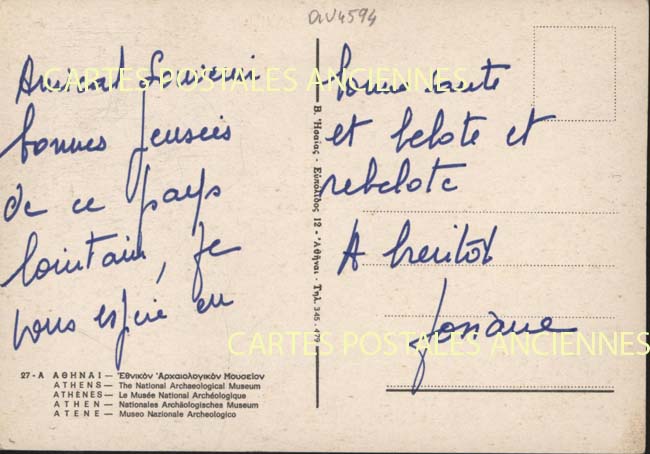 QU4594
Amical Souvenir
bonnes pensées
de ce pays
lointain, je
vous espère en
bonne santé
et belote et
rebelote
A bientôt
Josiane
CARTES POSTALES ANCIENNES
CARTES POSTALES ANCIENNES
Β. Ἡσαΐας - Εὐπόλιδος 12 - Ἀθῆναι - Τηλ. 345.479
27 - Α ΑΘΗΝΑΙ — Ἐθνικὸν Ἀρχαιολογικὸν Μουσεῖον
ATHENS — The National Archaeological Museum
ATHÈNES — Le Musée National Archéologique
ATHEN — Nationales Archäologisches Museum
ATENE — Museo Nazionale Archeologico